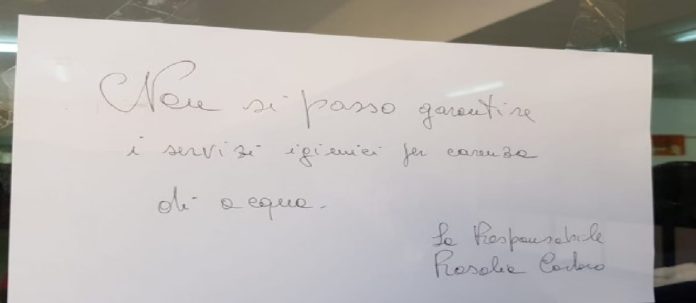 Non si posso garantire
i servizi igienici per carenza
di acqua.
La Responsabile
Rosalia